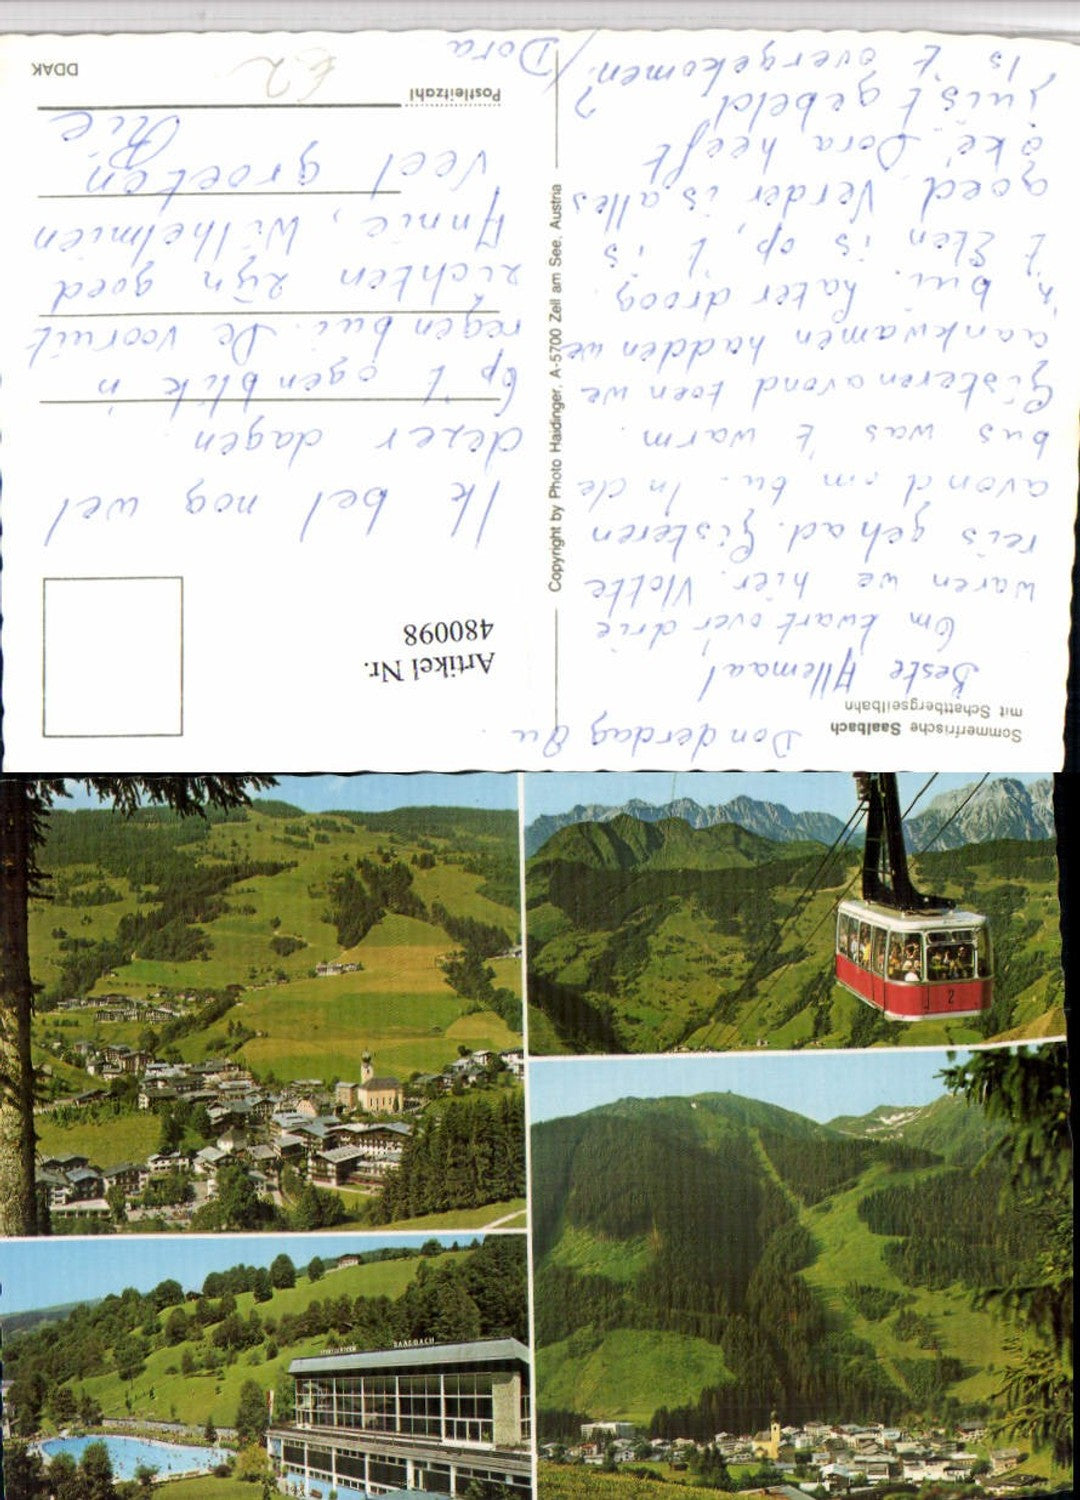 Donderdag 8 u.
Sommerfrische Saalbach
mit Schattbergseilbahn
Beste Allemaal
Om kwart over drie
waren we hier. Vlotte
reis gehad. Gisteren
avond in bu. In de
bus was 't warm.
Gisterenavond toen we
aankwamen hadden we
'n bui. Later droog.
't Eten is op, 't is
goed. Verder is alles
oké. Dora heeft
juist gebeld
is 't overgekomen? / Dora
Copyright by Photo Haidinger, A-5700 Zell am See, Austria
Artikel Nr.
480098
Ik bel nog wel
dezer dagen.
Op 't ogenblik 'n
regenbui. De vooruit
zichten zijn goed
Annie, Wilhelmien
Veel groeten
Rie
Postleitzahl
€2
DDAK
2
SAALBACH